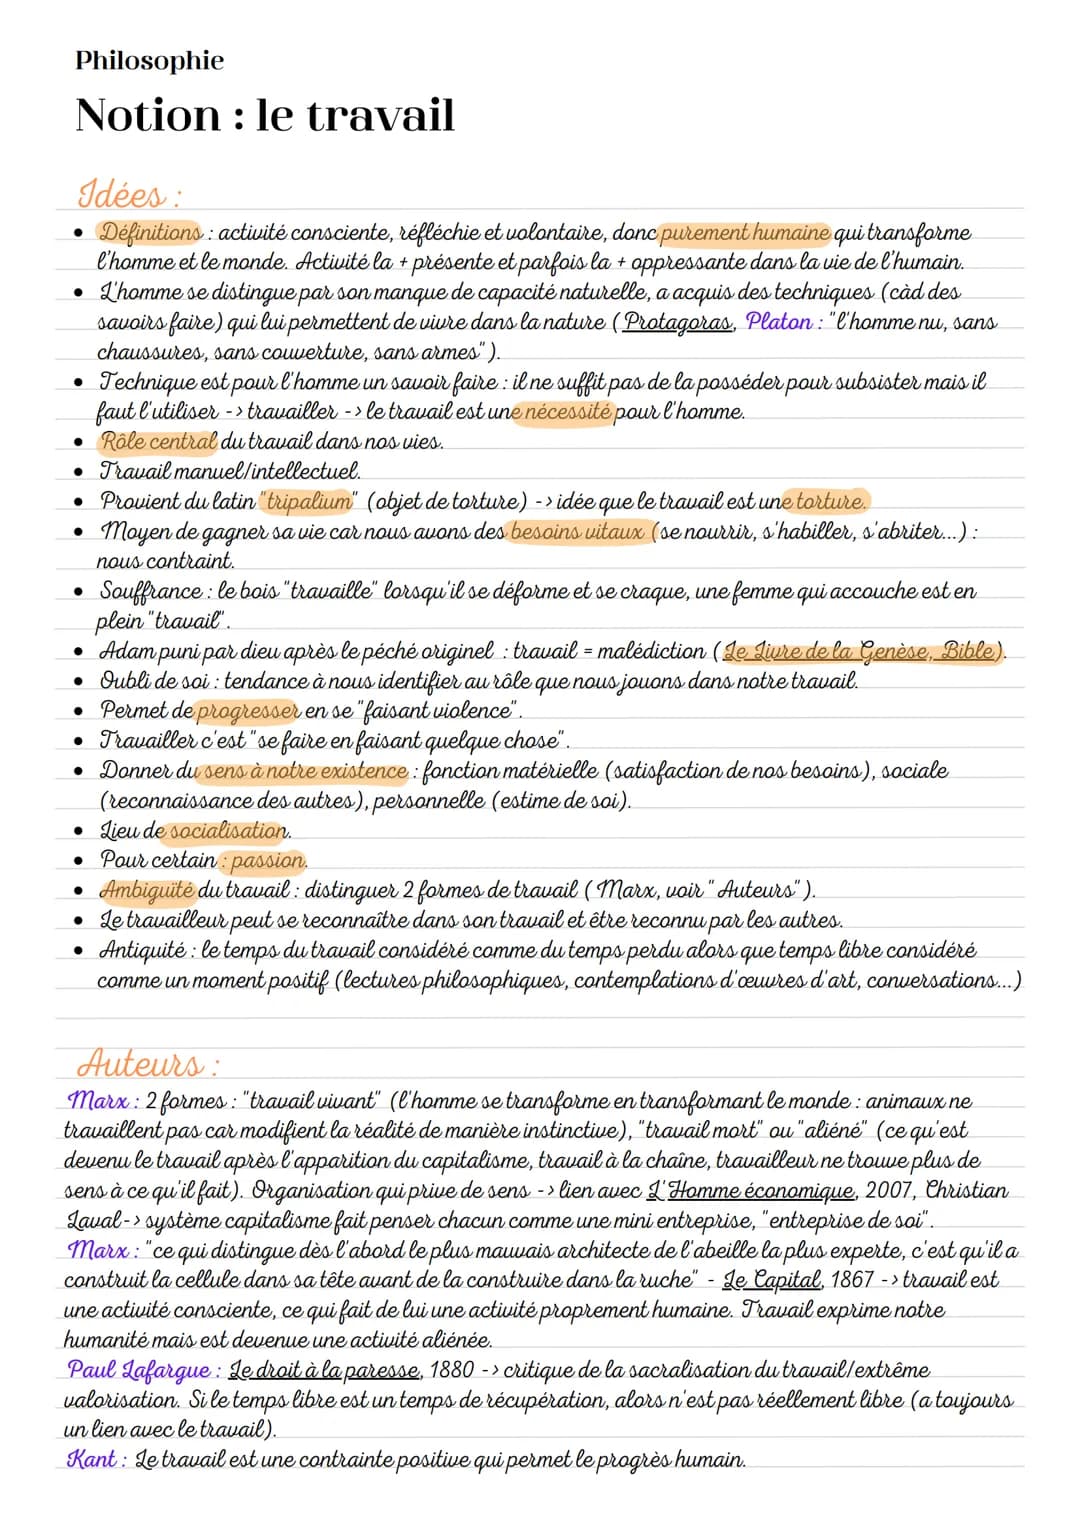 Philosophie
Notion : le travail
Idées :
• Définitions : activité consciente, réfléchie et volontaire, donc purement humaine qui transforme
l'homme et le monde. Activité la + présente et parfois la + oppressante dans la vie de l'humain.
• L'homme se distingue par son manque de capacité naturelle, a acquis des techniques (càd des
savoirs faire) qui lui permettent de vivre dans la nature ( Protagoras, Platon : "l'homme nu, sans
chaussures, sans couverture, sans armes" ).
• Technique est pour l'homme un savoir faire : il ne suffit pas de la posséder pour subsister mais il
faut l'utiliser -> travailler -> le travail est une nécessité pour l'homme.
• Rôle central du travail dans nos vies.
• Travail manuel/intellectuel.
• Provient du latin "tripalium" (objet de torture) -> idée que le travail est une torture.
• Moyen de gagner sa vie car nous avons des besoins vitaux (se nourrir, s'habiller, s'abriter...) :
nous contraint.
• Souffrance : le bois "travaille" lorsqu'il se déforme et se craque, une femme qui accouche est en
plein "travail".
• Adam puni par dieu après le péché originel : travail = malédiction ( Le Livre de la Genèse, Bible).
• Oubli de soi : tendance à nous identifier au rôle que nous jouons dans notre travail.
• Permet de progresser en se "faisant violence".
• Travailler c'est "se faire en faisant quelque chose".
• Donner du sens à notre existence : fonction matérielle (satisfaction de nos besoins), sociale
(reconnaissance des autres), personnelle (estime de soi).
• Lieu de socialisation.
• Pour certain : passion.
• Ambiguïté du travail : distinguer 2 formes de travail ( Marx, voir " Auteurs" ).
• Le travailleur peut se reconnaître dans son travail et être reconnu par les autres.
• Antiquité : le temps du travail considéré comme du temps perdu alors que temps libre considéré
comme un moment positif (lectures philosophiques, contemplations d'œuvres d'art, conversations...)
Auteurs :
Marx : 2 formes : "travail vivant" (l'homme se transforme en transformant le monde : animaux ne
travaillent pas car modifient la réalité de manière instinctive), "travail mort" ou "aliéné" (ce qu'est
devenu le travail après l'apparition du capitalisme, travail à la chaîne, travailleur ne trouve plus de
sens à ce qu'il fait). Organisation qui prive de sens -> lien avec L'Homme économique, 2007, Christian
Laval -> système capitalisme fait penser chacun comme une mini entreprise, "entreprise de soi".
Marx : "ce qui distingue dès l'abord le plus mauvais architecte de l'abeille la plus experte, c'est qu'il a
construit la cellule dans sa tête avant de la construire dans la ruche" - Le Capital, 1867 -> travail est
une activité consciente, ce qui fait de lui une activité proprement humaine. Travail exprime notre
humanité mais est devenue une activité aliénée.
Paul Lafargue : Le droit à la paresse, 1880 -> critique de la sacralisation du travail/extrême
valorisation. Si le temps libre est un temps de récupération, alors n'est pas réellement libre (a toujours
un lien avec le travail).
Kant : Le travail est une contrainte positive qui permet le progrès humain.